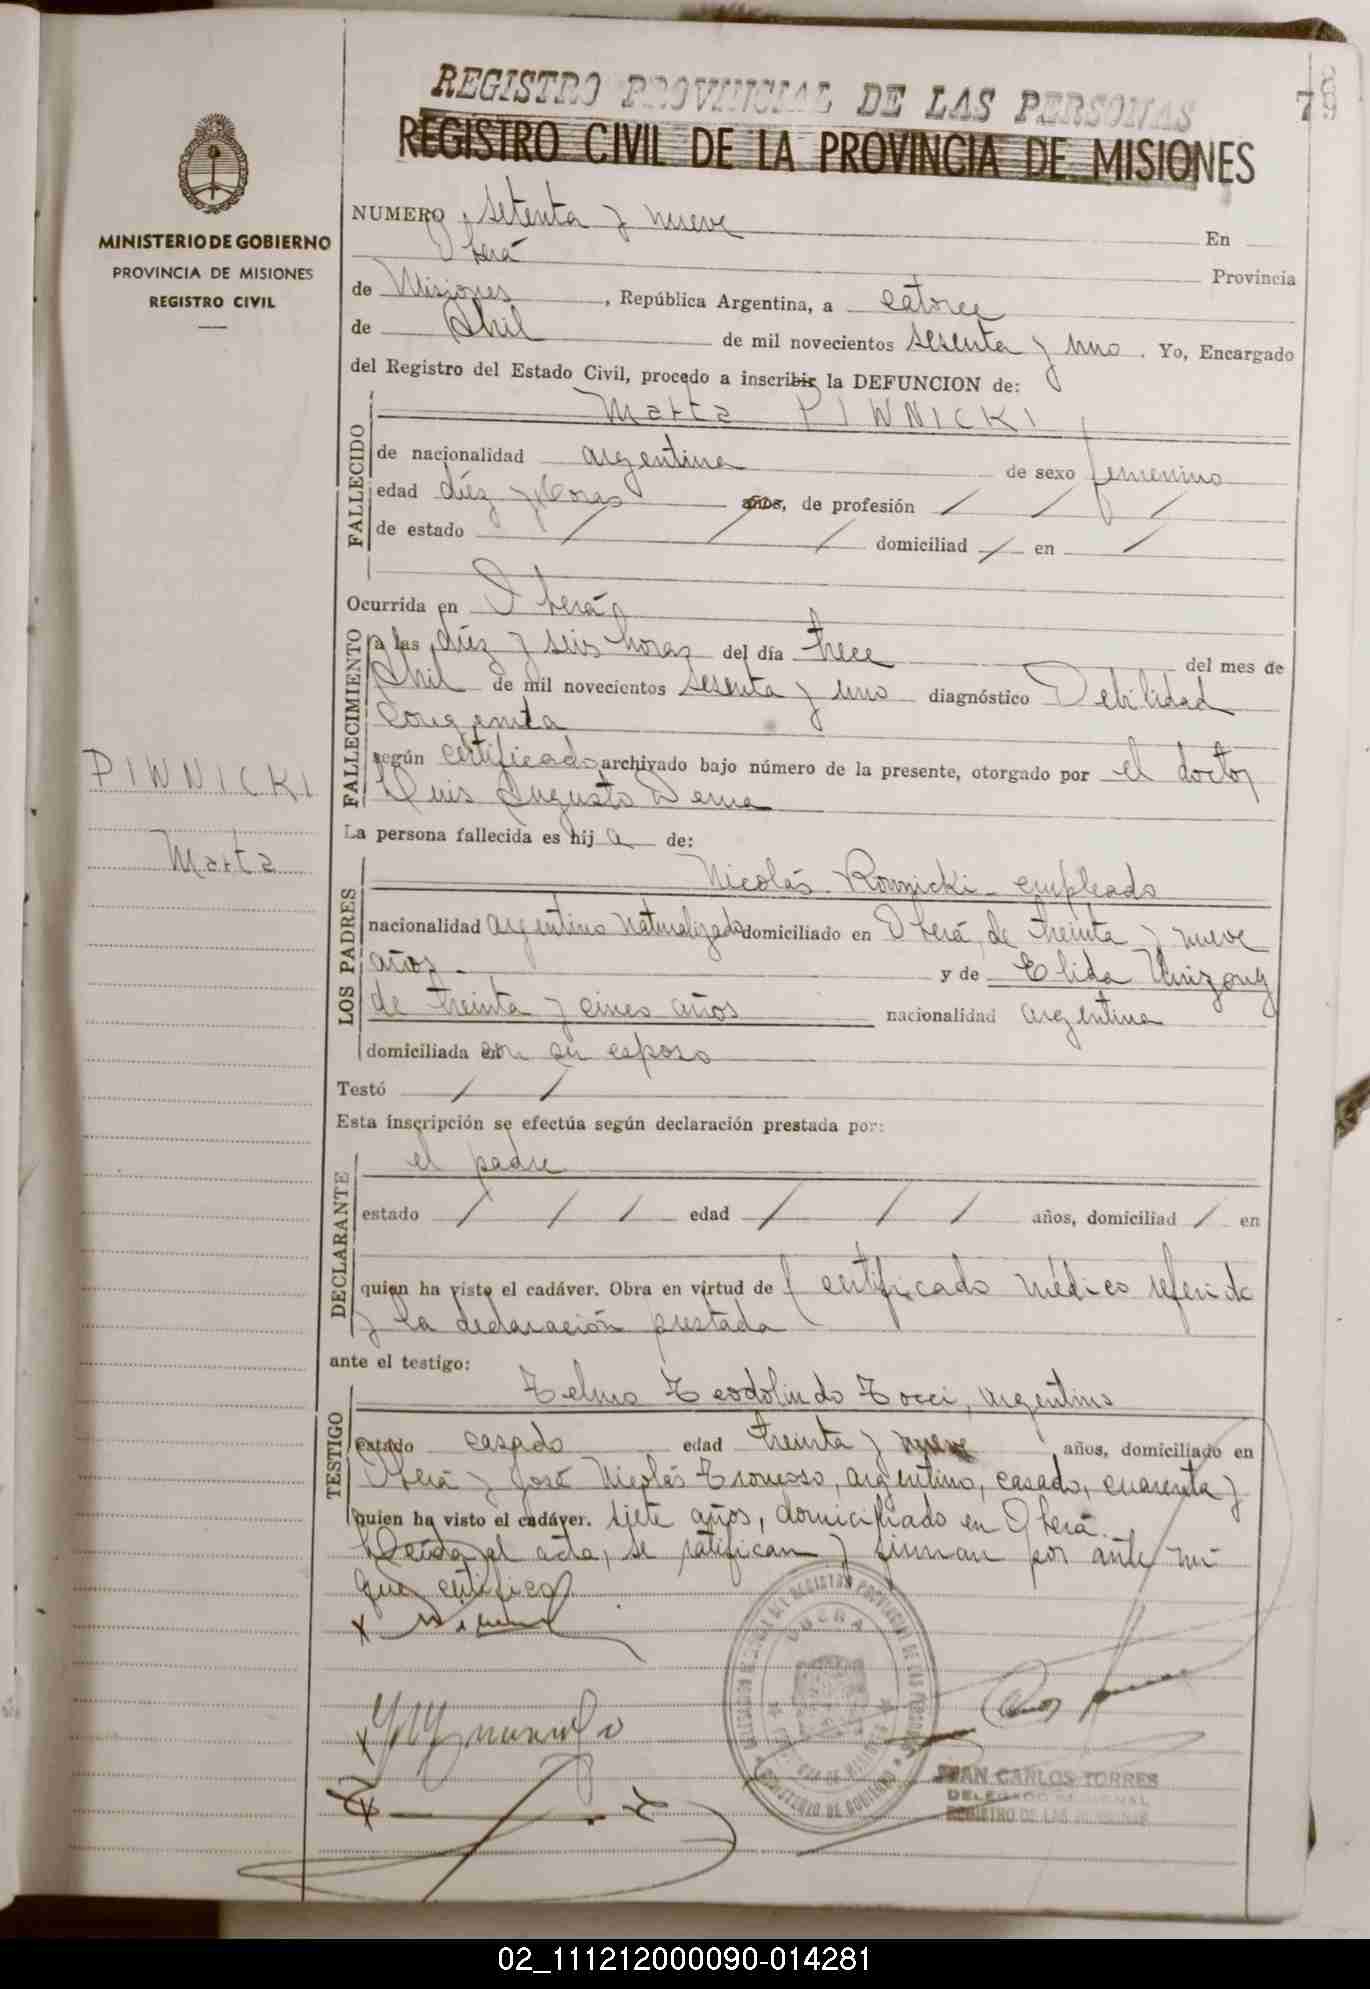 REGISTRO PROVINCIAL DE LAS PERSONAS
79
REGISTRO CIVIL DE LA PROVINCIA DE MISIONES
MINISTERIO DE GOBIERNO
PROVINCIA DE MISIONES
REGISTRO CIVIL
NUMERO setenta y nueve En
Oberá Provincia
de Misiones, República Argentina, a catorce
de Abril de mil novecientos sesenta y uno. Yo, Encargado
del Registro del Estado Civil, procedo a inscribir la DEFUNCION de:
Marta PIWNICKI
FALLECIDO
de nacionalidad argentina de sexo femenino
edad diéz y horas años, de profesión / / /
de estado / / / domiciliad / en /
Ocurrida en Oberá
FALLECIMIENTO
a las diéz y seis horas del día trece del mes de
Abril de mil novecientos sesenta y uno diagnóstico Debilidad
Congenita
según certificado archivado bajo número de la presente, otorgado por el doctor
Luis Augusto Derna
PIWNICKI
Marta
La persona fallecida es hij a de:
LOS PADRES
Nicolás - empleado
nacionalidad argentino naturalizado domiciliado en Oberá, de treinta y nueve
años - y de Elida
de treinta y cinco años nacionalidad argentina
domiciliada con su esposo
Testó / /
Esta inscripción se efectúa según declaración prestada por:
DECLARANTE
el padre
estado / / / edad / / / años, domiciliad / en
quien ha visto el cadáver. Obra en virtud de certificado médico referido
y la declaración prestada
ante el testigo:
TESTIGO
Telmo Teodolindo Tocci, argentino
estado casado edad treinta y nueve años, domiciliado en
Oberá y José Nicolás Troncoso, argentino, casado, cuarenta y
quien ha visto el cadáver. siete años, domicifliado en Oberá.-
Leída el acta, se ratifican y firman por ante mi
que certifico
DELEGACION REGIONAL DEL REGISTRO PROVINCIAL DE LAS PERSONAS
OBERA
PROVINCIA DE MISIONES
MINISTERIO DE GOBIERNO
JUAN CARLOS TORRES
DELEGADO REGIONAL
REGISTRO DE LAS PERSONAS
02_111212000090-014281